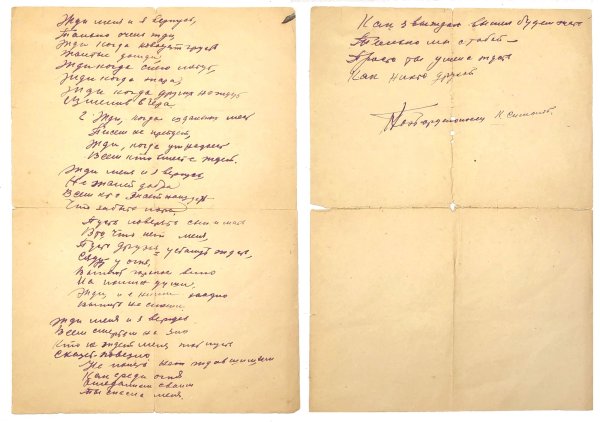 Жди меня и я вернусь,
Только очень жди
Жди когда наводят грусть
Желтые дожди,
Жди когда снега метут,
Жди когда жара,
Жди когда других не ждут
Изменив вчера
Жди, когда из дальних мест
Писем не придет,
Жди, когда уж надоест
Всем кто вместе ждет.
Жди меня и я вернусь
Не желай добра
Всем кто знает наизусть
Что забыть пора,
Пусть поверят сын и мать
В то что нет меня,
Пусть друзья устанут ждать,
Сядут у огня,
Выпьют горькое вино
На помин души,
Жди и с ними заодно
Выпить не спеши.
Жди меня и я вернусь
Всем смертям на зло
Кто не ждал меня тот пусть
Скажет повезло
Не понять не ждавшим им
Как среди огня
Ожиданием своим
Ты спасла меня.
Как я выжил будем знать
Только мы с тобой
Просто ты умела ждать
Как никто другой